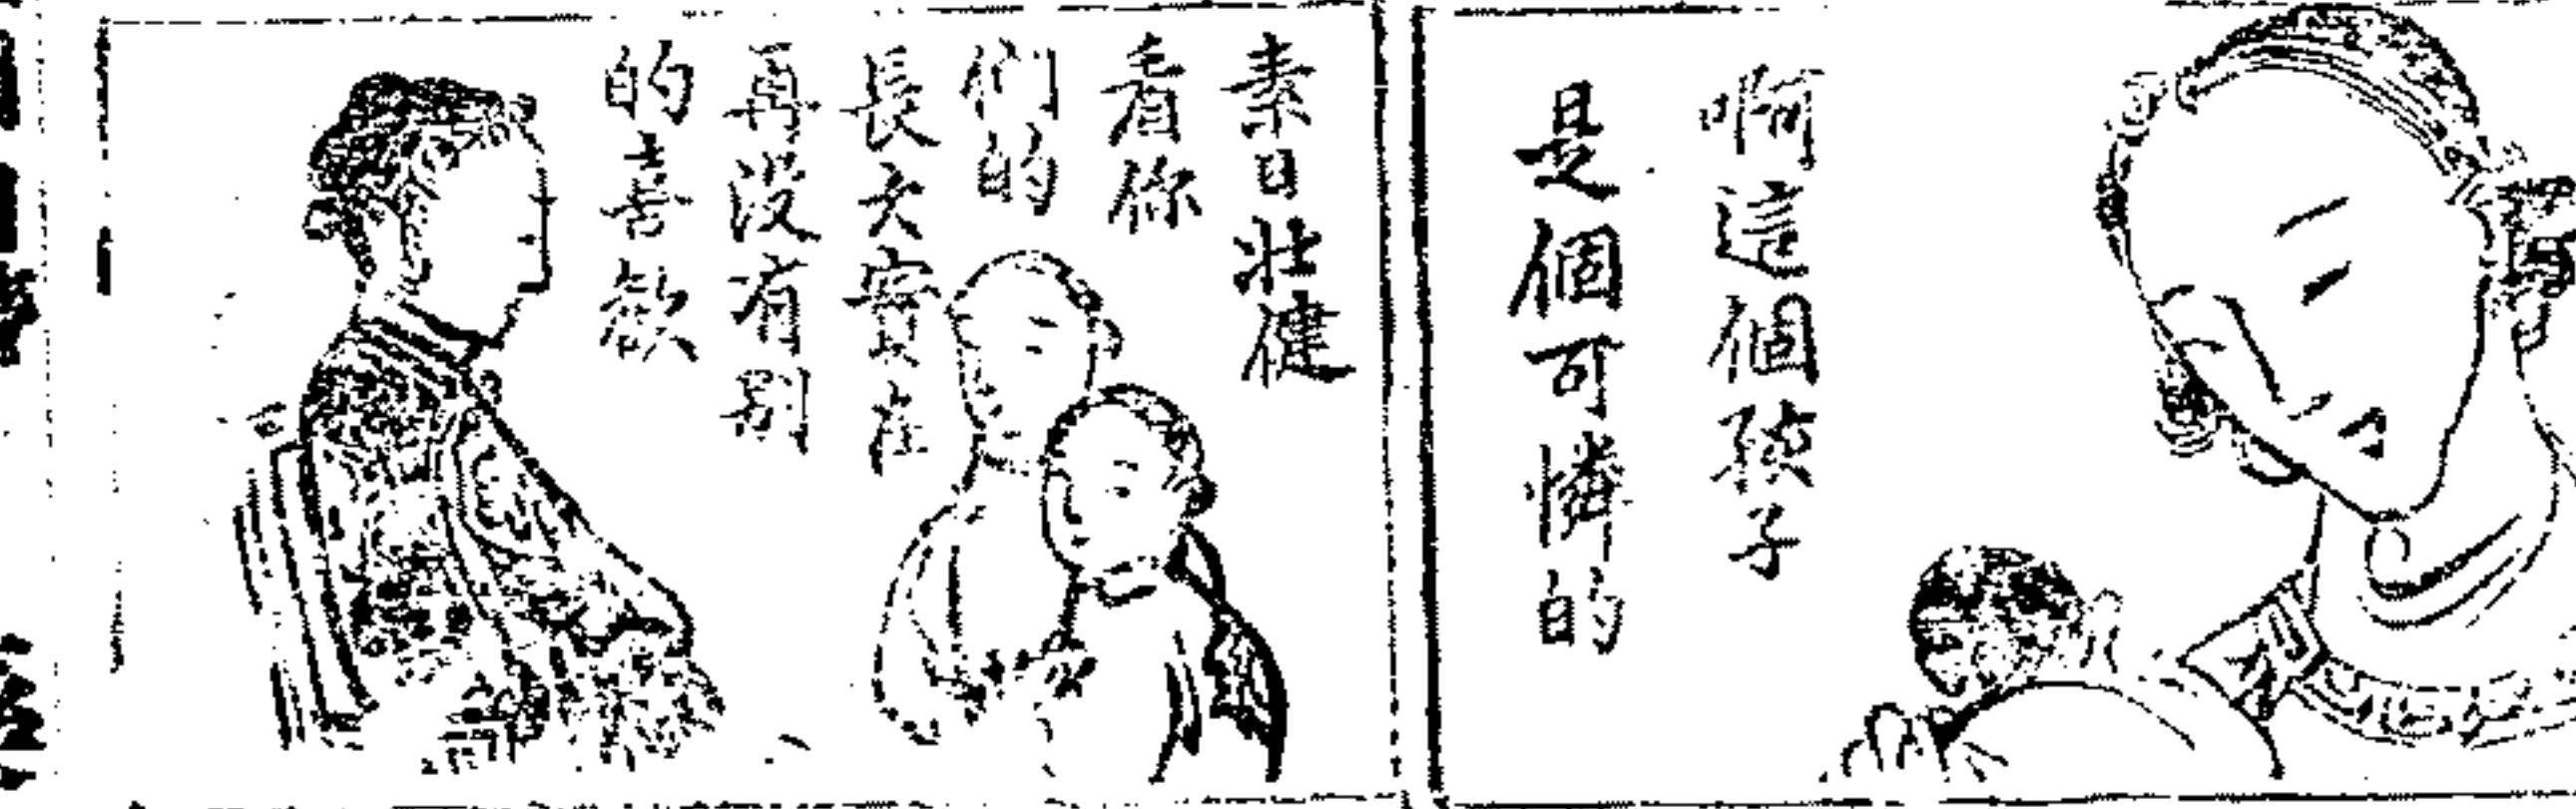 啊這個孩子
是個可憐的
素日壯健
看你
們的
長大實在
再没有别
的喜歡